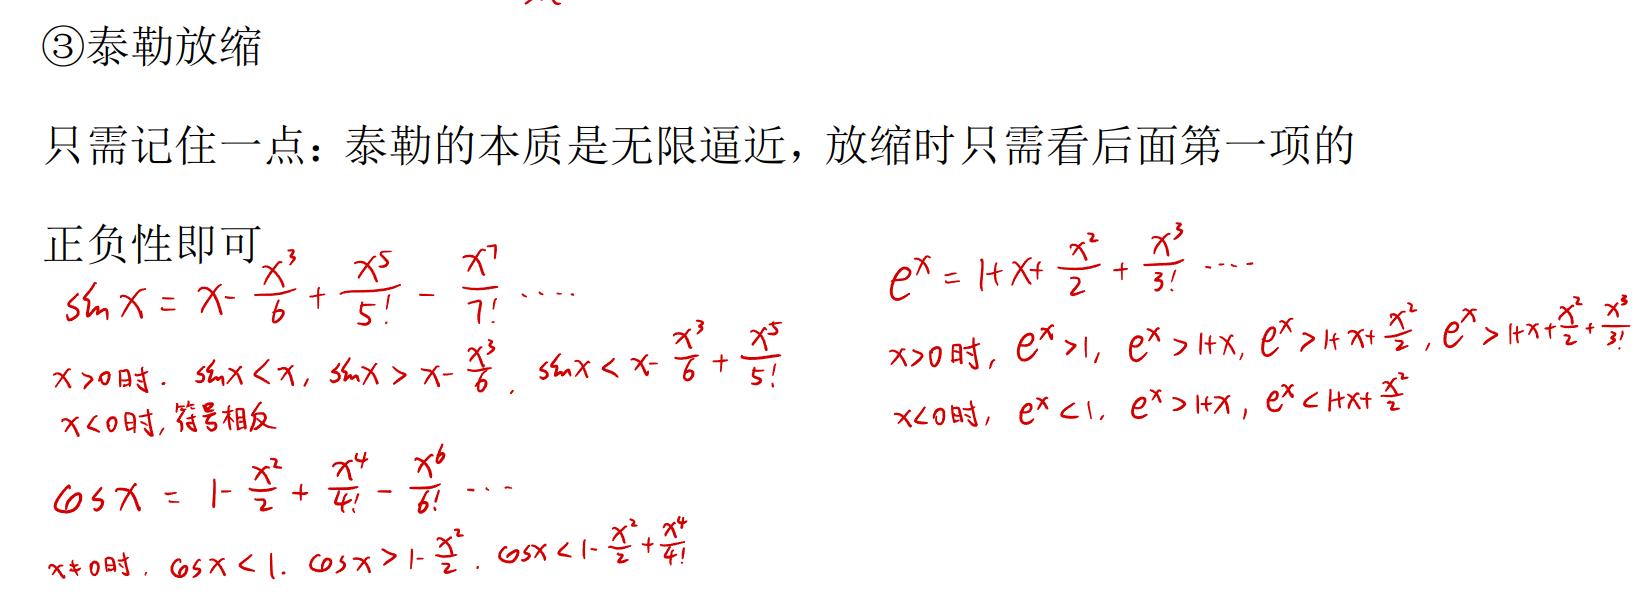 ③泰勒放缩
只需记住一点：泰勒的本质是无限逼近，放缩时只需看后面第一项的
正负性即可
sin x = x - x³/6 + x⁵/5! - x⁷/7! ····
x>0时. sinx<x, sinx > x - x³/6 , sinx < x - x³/6 + x⁵/5!
x<0时,符号相反
cos x = 1 - x²/2 + x⁴/4! - x⁶/6! ···
x≠0时. cosx<1. cosx>1 - x²/2 . cosx<1 - x²/2 + x⁴/4!
eˣ = 1+x+ x²/2 + x³/3! ····
x>0时, eˣ>1, eˣ>1+x, eˣ>1+x+ x²/2 , eˣ>1+x+ x²/2 + x³/3!
x<0时, eˣ<1. eˣ>1+x, eˣ<1+x+ x²/2